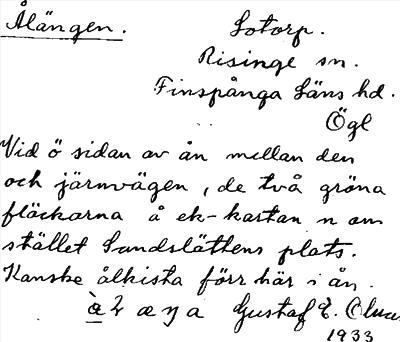 Ålängen. Sotorp.
Risinge sn.
Finspånga läns hd.
Ögl
Vid ö sidan av ån mellan den
och järnvägen, de två gröna
fläckarna å ek-kartan n om
stället Sandslättens plats.
Kanske ålkista förr här i ån.
Gustaf E.
1933